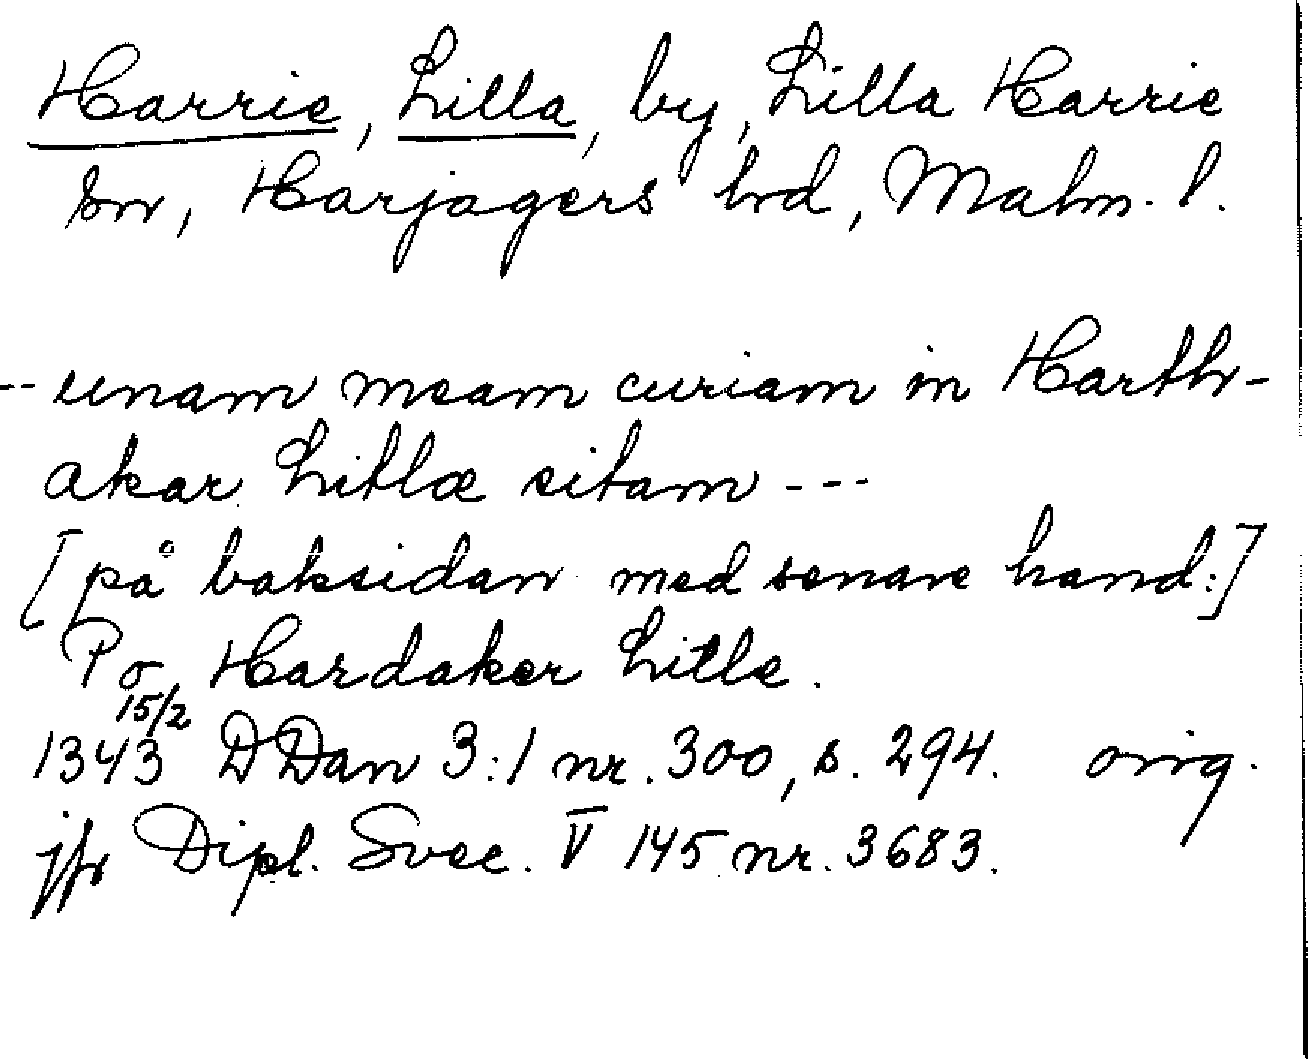 Harrie, Lilla, by, Lilla Harrie
sn, Harjagers hd, Malm. l.
-- unam meam curiam in Harth-
akar Litlæ sitam ---
[på baksidan med senare hand:]
Po Hardaker Litle.
15/2
1343 DDan 3:1 nr. 300, s. 294. orig.
jfr Dipl. Svec. V 145 nr. 3683.